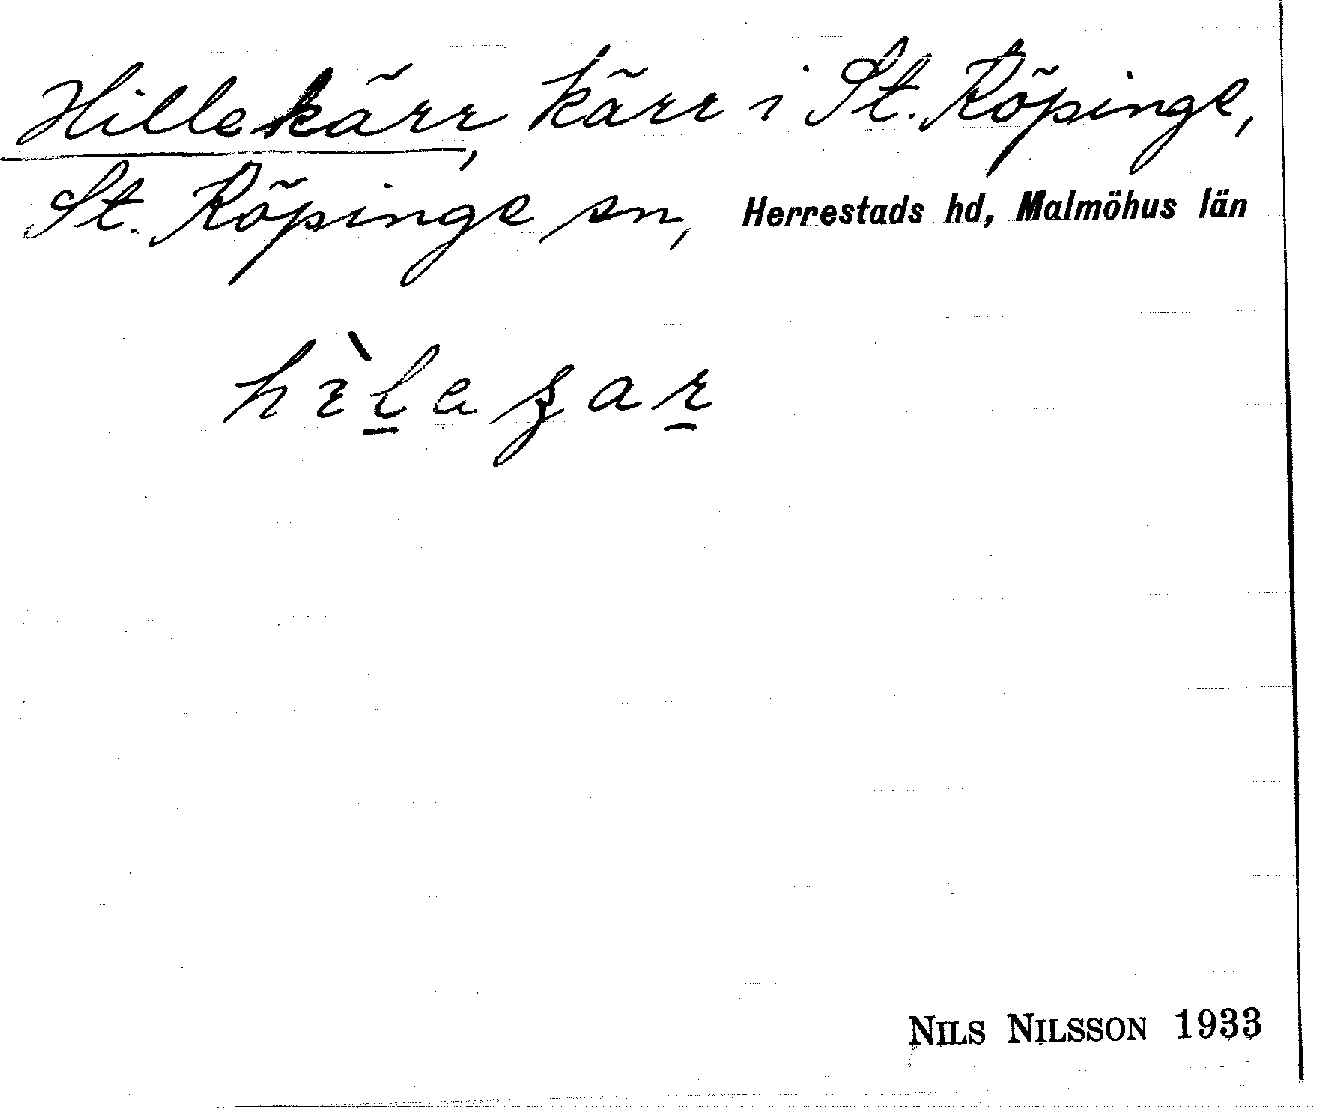 Hillekärr, kärr i St. Köpinge,
St. Köpinge sn, Herrestads hd, Malmöhus län
NILS NILSSON 1933